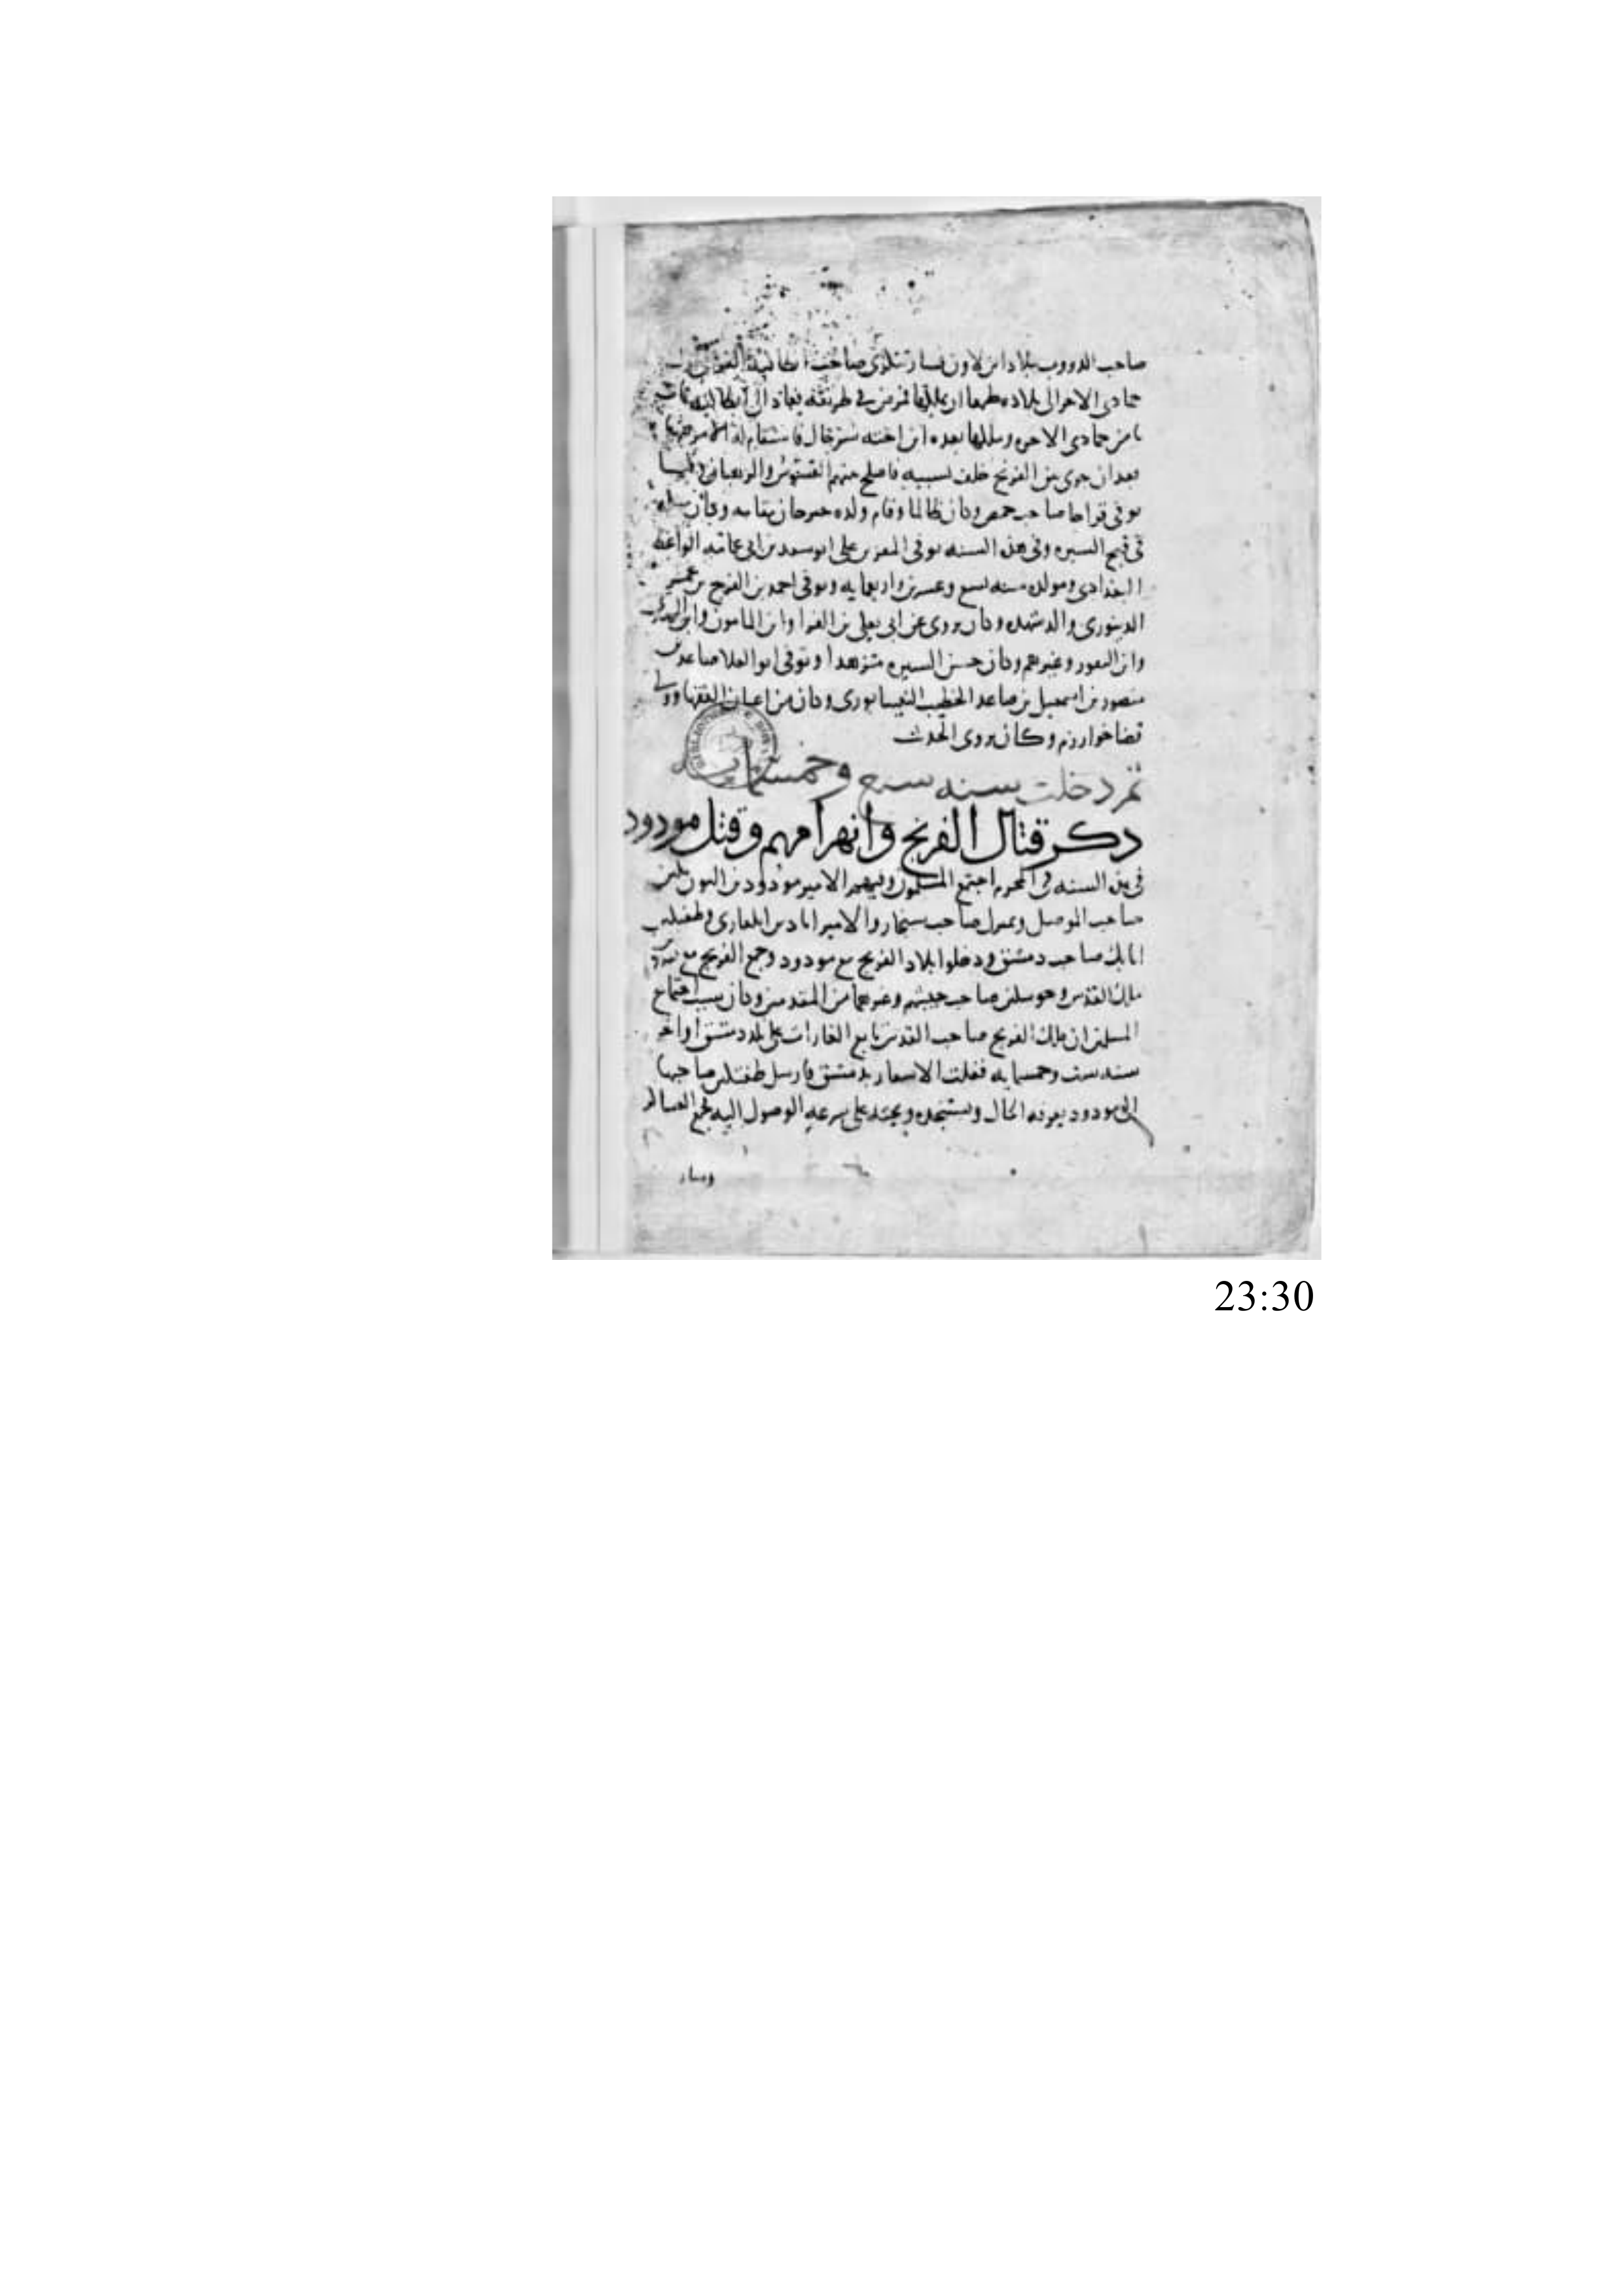 صاحب الدروب ببلاد ابن لاون فسار تنكرى صاحب انطاكية
جمادى الاخرة الى بلاده طمعا ان يملكها فمرض فى طريقه فعاد الى انطاكيه فمات
ثامن جمادى الاخره وملكها بعده ابن اخته سرخال فاستقام له الامر فيها
بعد ان جرى بين الفرنج خلف بسببه فاصلح بينهم القسوس والرهبان وفيها
توفى قراجا صاحب حمص وكان ظالما وقام ولده خيرخان مقامه وكان مثله
فى قبح السيره وفى هذه السنه توفى المعمر بن على ابو سعد بن ابى عمامه الواعظ
البغدادى ومولده سنه تسع وعشرين واربعمايه وتوفى احمد بن الفرج بن عمر
الدينورى والد شهده وكان يروى عن ابى يعلى بن الفرا وابن المامون وابن المهتدى
وابن النقور وغيرهم وكان حسن السيره متزهدا وتوفى ابو العلا صاعد بن
منصور بن اسمعيل بن صاعد الخطيب النيسابورى وكان من اعيان الفقها وولى
قضا خوارزم وكان يروى الحديث
ثم دخلت سنه سبع وخمسمايه
ذكر قتال الفرنج وانهزامهم وقتل مودود
فى هذه السنه فى المحرم اجتمع المسلمون وفيهم الامير مودود بن التون تكين
صاحب الموصل وتميرك صاحب سنجار والامير اياز بن ايلغازى وطغتكين
اتابك صاحب دمشق ودخلوا بلاد الفرنج مع مودود وجمع الفرنج مع
ملك القدس وجوسلين صاحب جيشهم وغيرهما من المقدمين وكان سبب اجتماع
المسلمين ان ملك الفرنج صاحب القدس تابع الغارات على بلد دمشق اواخر
سنه ست وخمسمايه فغلت الاسعار بدمشق فارسل طغتكين صاحبها
الى مودود يعرفه الحال ويستنجده ويحثه على سرعه الوصول اليه فجمع العساكر
وسار
23:30